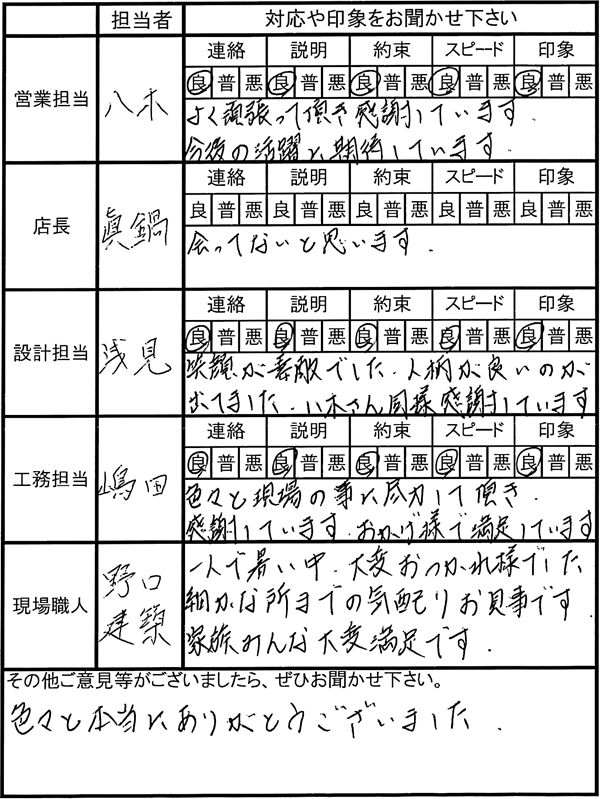 担当者 対応や印象をお聞かせ下さい
連絡 説明 約束 スピード 印象
営業担当 八木 良 普 悪 良 普 悪 良 普 悪 良 普 悪 良 普 悪
よく頑張って頂き感謝しています.
今後の活躍に期待しています.
連絡 説明 約束 スピード 印象
店長 眞鍋 良 普 悪 良 普 悪 良 普 悪 良 普 悪 良 普 悪
会ってないと思います.
連絡 説明 約束 スピード 印象
設計担当 浅見 良 普 悪 良 普 悪 良 普 悪 良 普 悪 良 普 悪
笑顔が素敵でした.人柄が良いのが
出てました.八木さん同様感謝しています
連絡 説明 約束 スピード 印象
工務担当 嶋田 良 普 悪 良 普 悪 良 普 悪 良 普 悪 良 普 悪
色々と現場の事に尽力して頂き.
感謝しています.おかげ様で満足しています
現場職人 野口建築
一人で暑い中.大変おつかれ様でした
細かな所までの気配りお見事です.
家族みんな大変満足です.
その他ご意見等がございましたら、ぜひお聞かせ下さい。
色々と本当にありがとうございました.